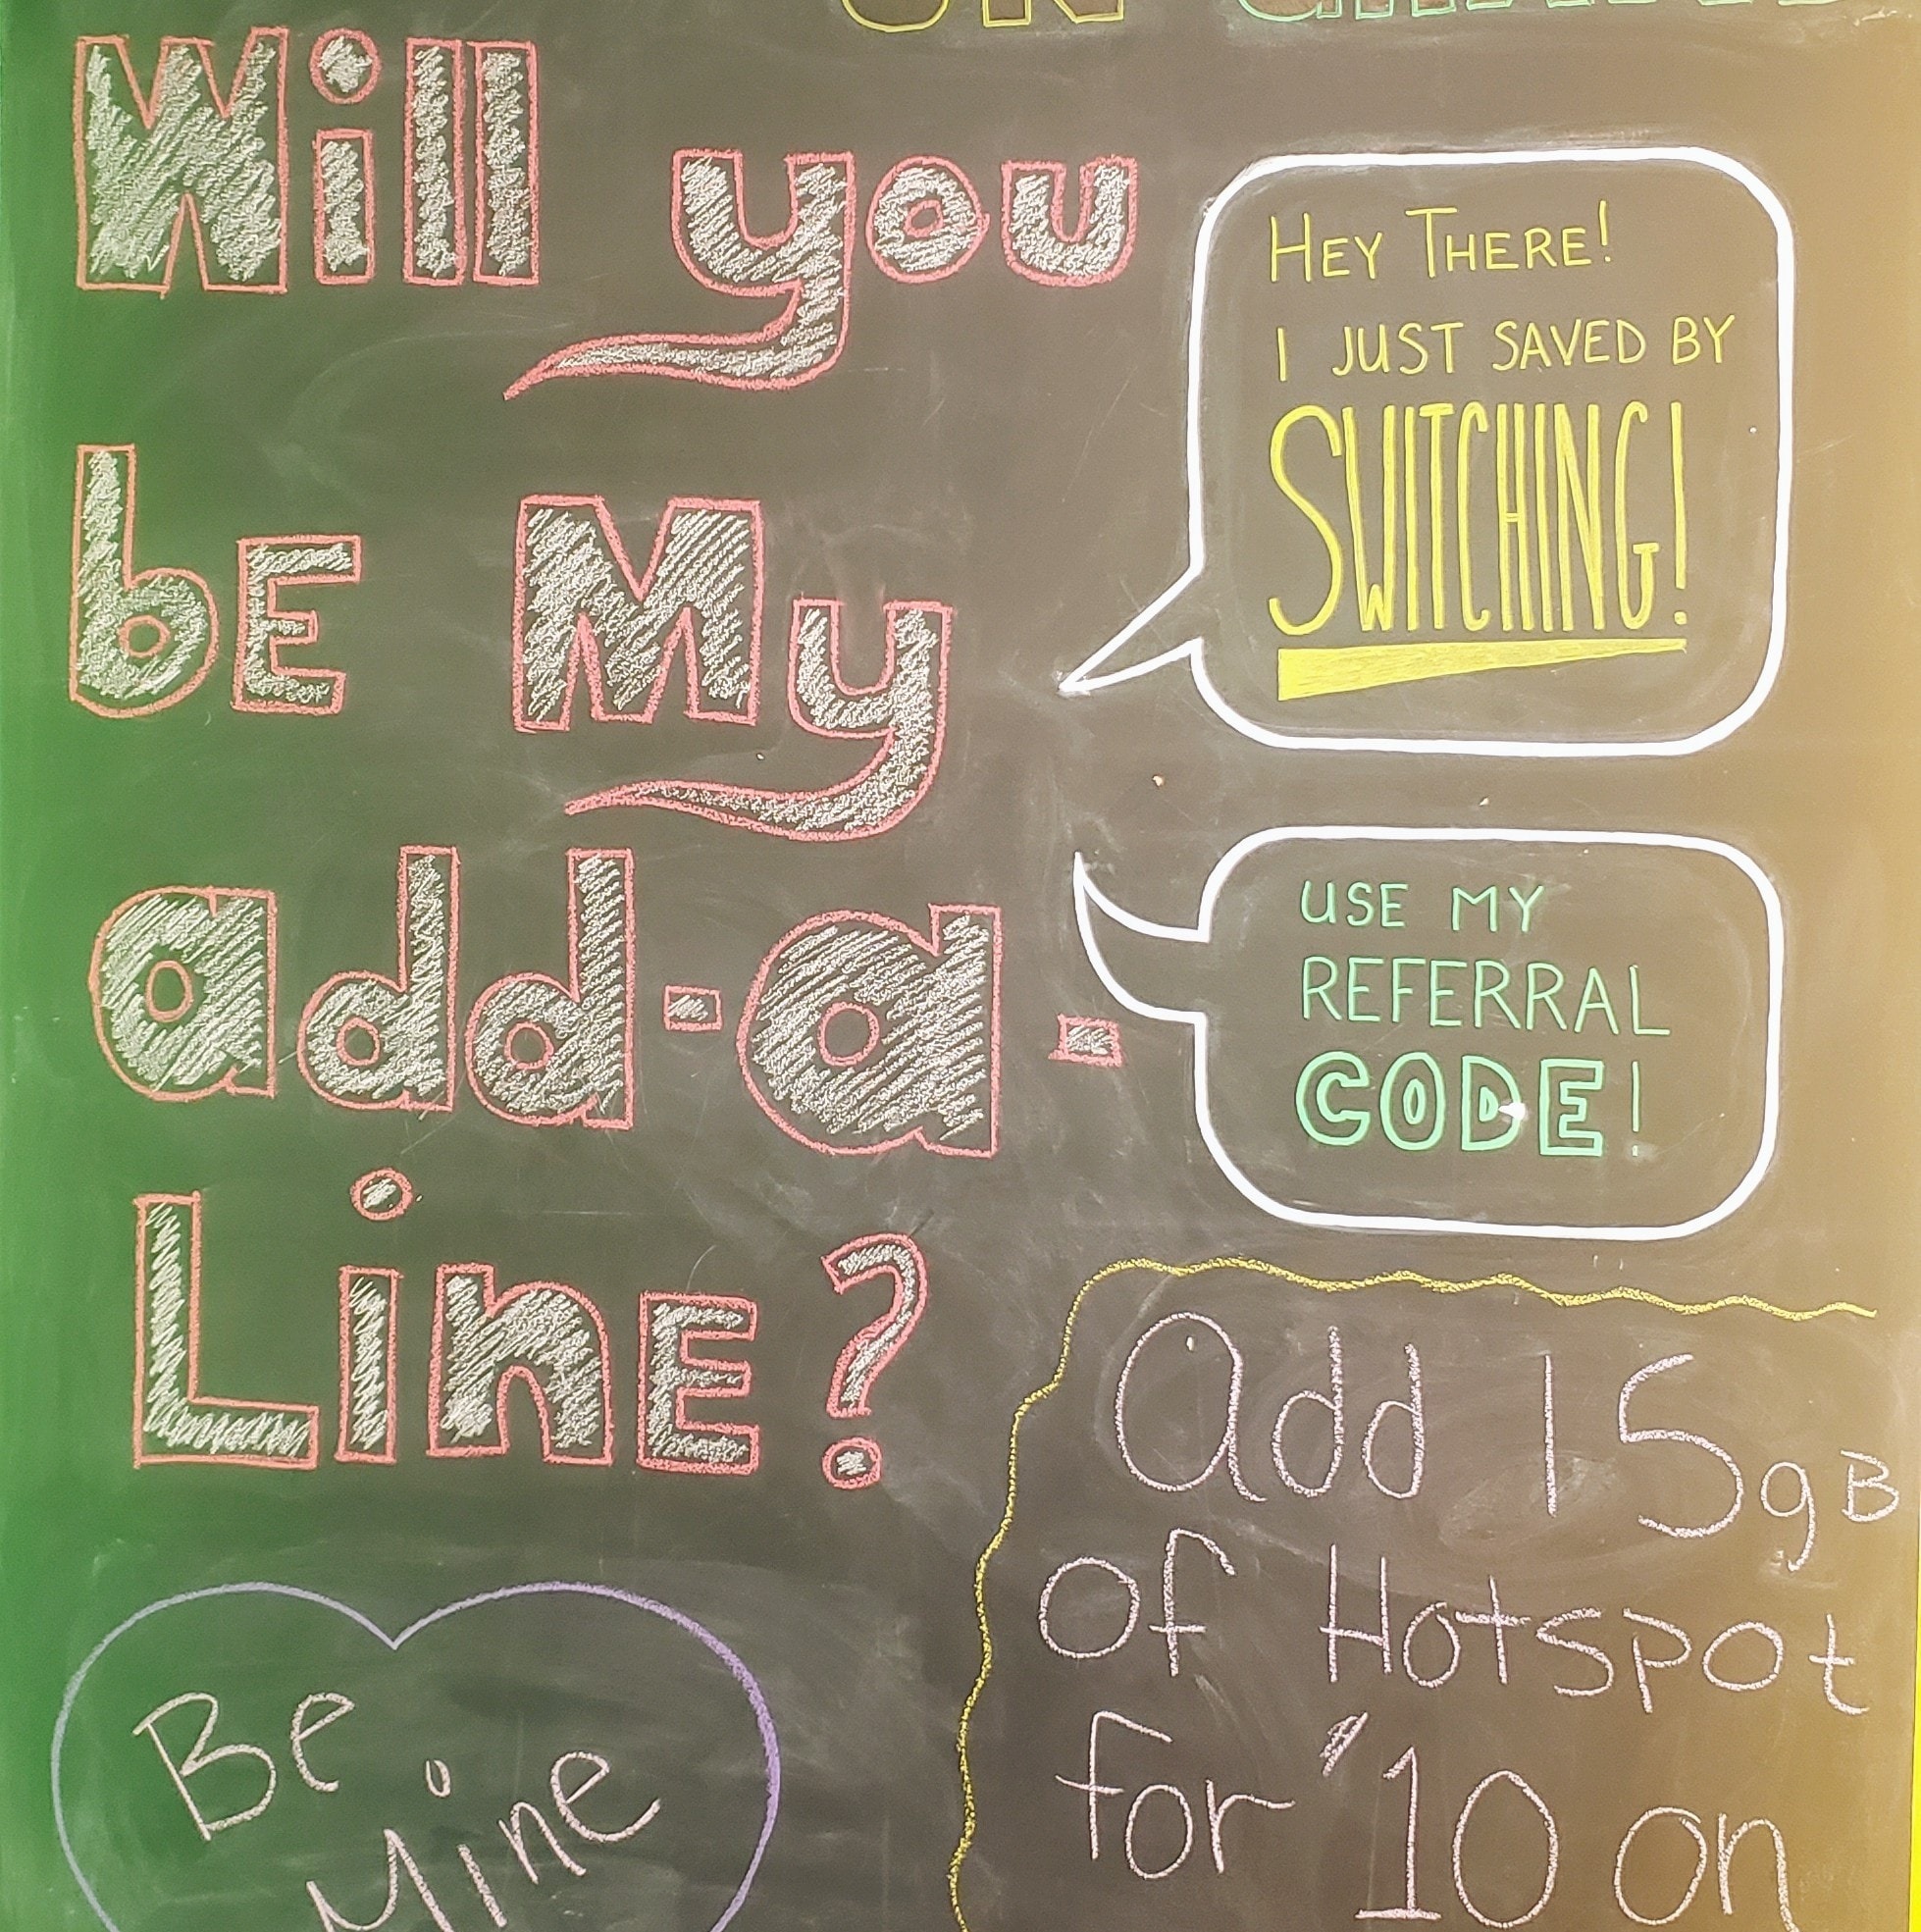 Will you
bE My
add-a-
LinE?
HEY THERE!
I JUST SAVED BY
SWITCHING!
USE MY
REFERRAL
CODE!
Add 15gB
of Hotspot
for "10 on
Be
Mine